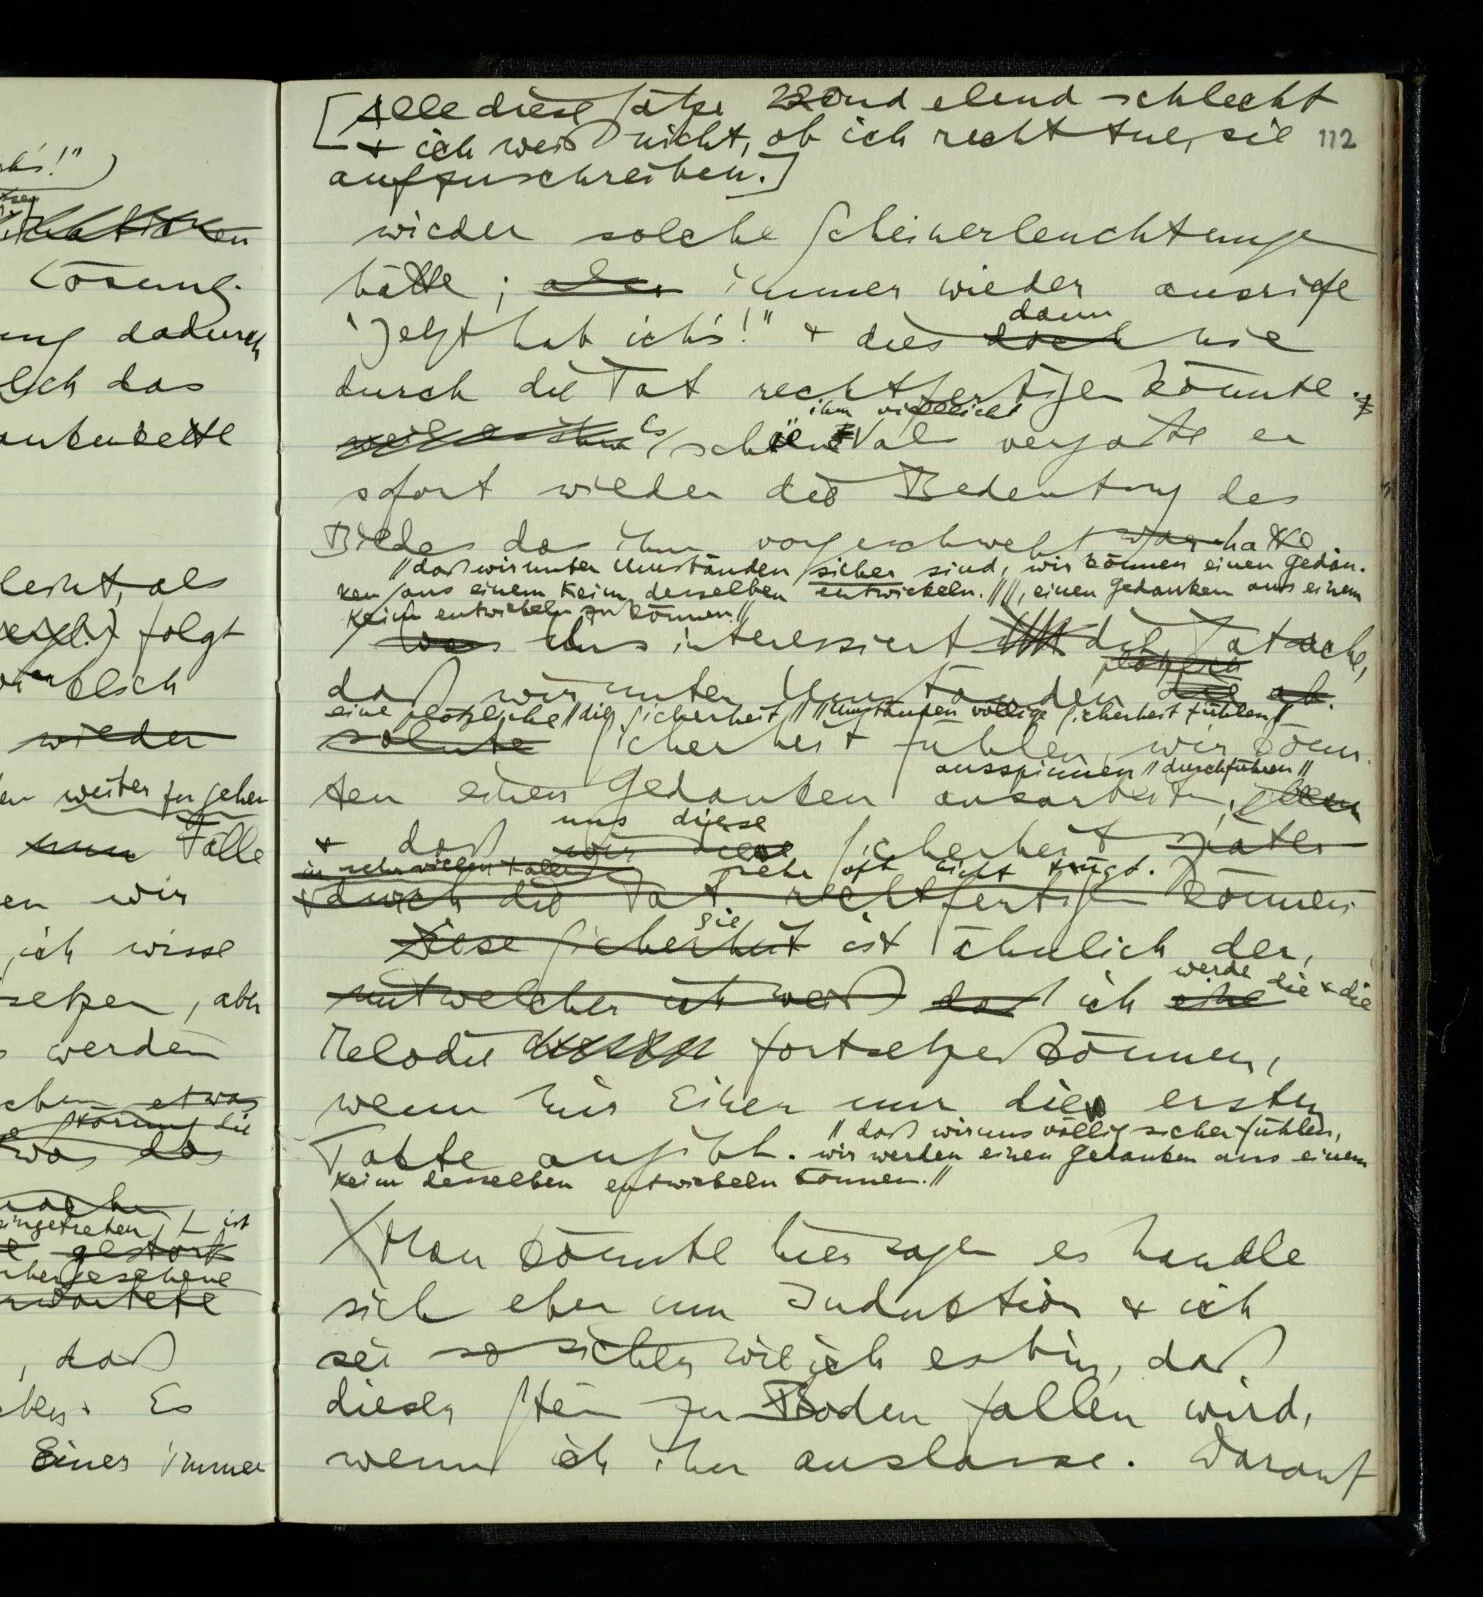 ch's!")
Lösung.
ung dadurch
lich das
leicht, als
folgt
wieder
en weiter zu gehen
nun Fälle
en wir
, ich wisse
setzen, aber
werden
etwas
Störung die
was das
eingetreten ist
gestört
, daß
Es
Eines immer
[Alle diese Sätze sind elend schlecht
+ ich weiß nicht, ob ich recht tue, sie 112
aufzuschreiben.]
wieder solche Scheinerleuchtungen
hätte; aber immer wieder ausriefe
dann
"Jetzt hab ich's!" + dies doch nie
durch die Tat rechtfertigen könnte.
ihm vielleicht
Es schiene Val vergäße er
sofort wieder die Bedeutung des
Bildes das ihm vorgeschwebt war hatte
// daß wir unter Umständen sicher sind, wir können einen Gedan-
ken aus einem Keim desselben entwickeln. // //, einen Gedanken aus einem
Keim entwickeln zu können //
was Uns interessiert die Tatsache,
plötzlich
daß wir unter Umständen die ab-
eine plötzliche // die Sicherheit // // Umständen völlige Sicherheit fühlen //
solute Sicherheit fühlen, wir könn-
ausspinnen // durchführen //
ten einen Gedanken ausarbeiten,
uns diese
+ daß wir diese Sicherheit später
in sehr vielen Fällen sehr oft nicht trügt.
+ durch die Tat rechtfertigen können
sie
Diese Sicherheit ist ähnlich der,
werde die + die
mit welcher ich weiß daß ich eine
Melodie fortsetzen können,
wenn mir Einer nur die ersten
Takte angibt. // daß wir uns völlig sicher fühlen,
wir werden einen Gedanken aus einem
Keim desselben entwickeln können. //
Man könnte hier sagen es handle
sich eben um Induktion + ich
sei so sicher wie ich es bin, daß
dieser Stein zu Boden fallen wird,
wenn ich ihn auslasse. Darauf